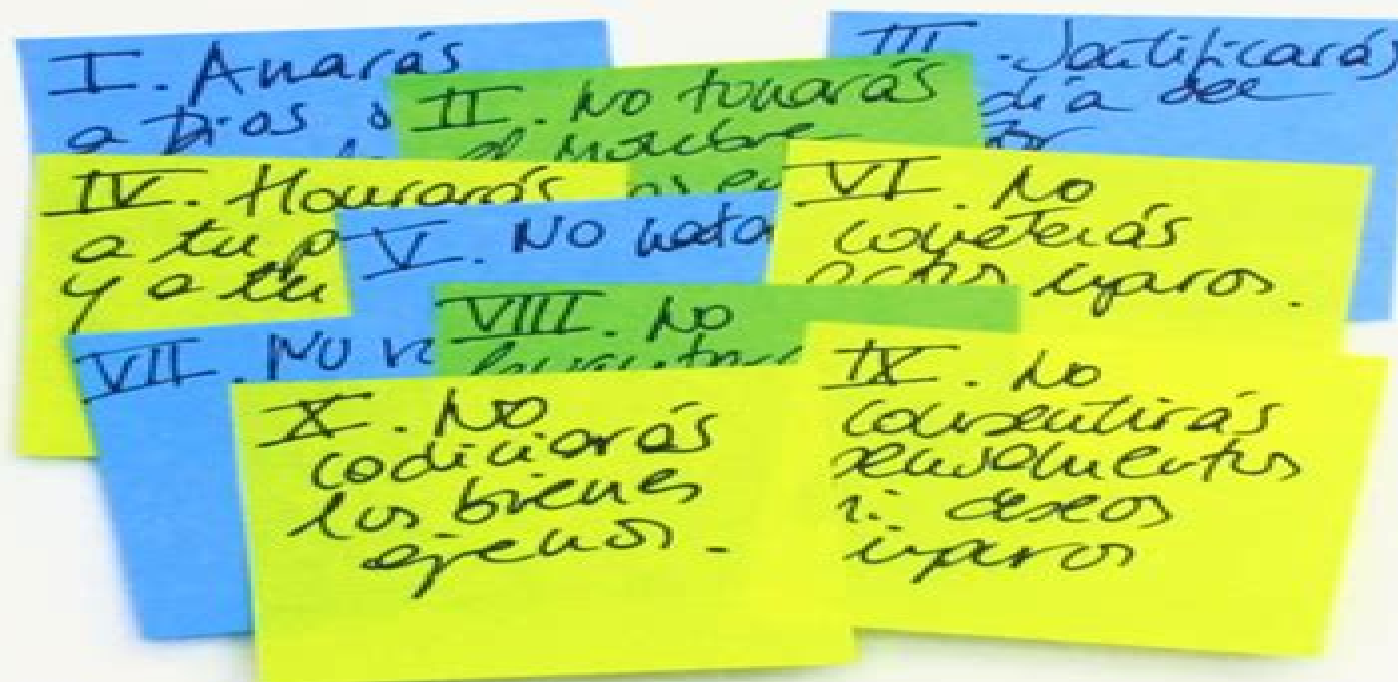 I. Amarás
a Dios
II. No tomarás
el nombre
III. Santificarás
día del
IV. Honrarás
a tu
y a tu
V. No mata
VI. No
cometerás
actos impuros.
VII. No
VIII. No
IX. No
consentirás
pensamientos
ni deseos
impuros
X. No
codiciarás
los bienes
ajenos.